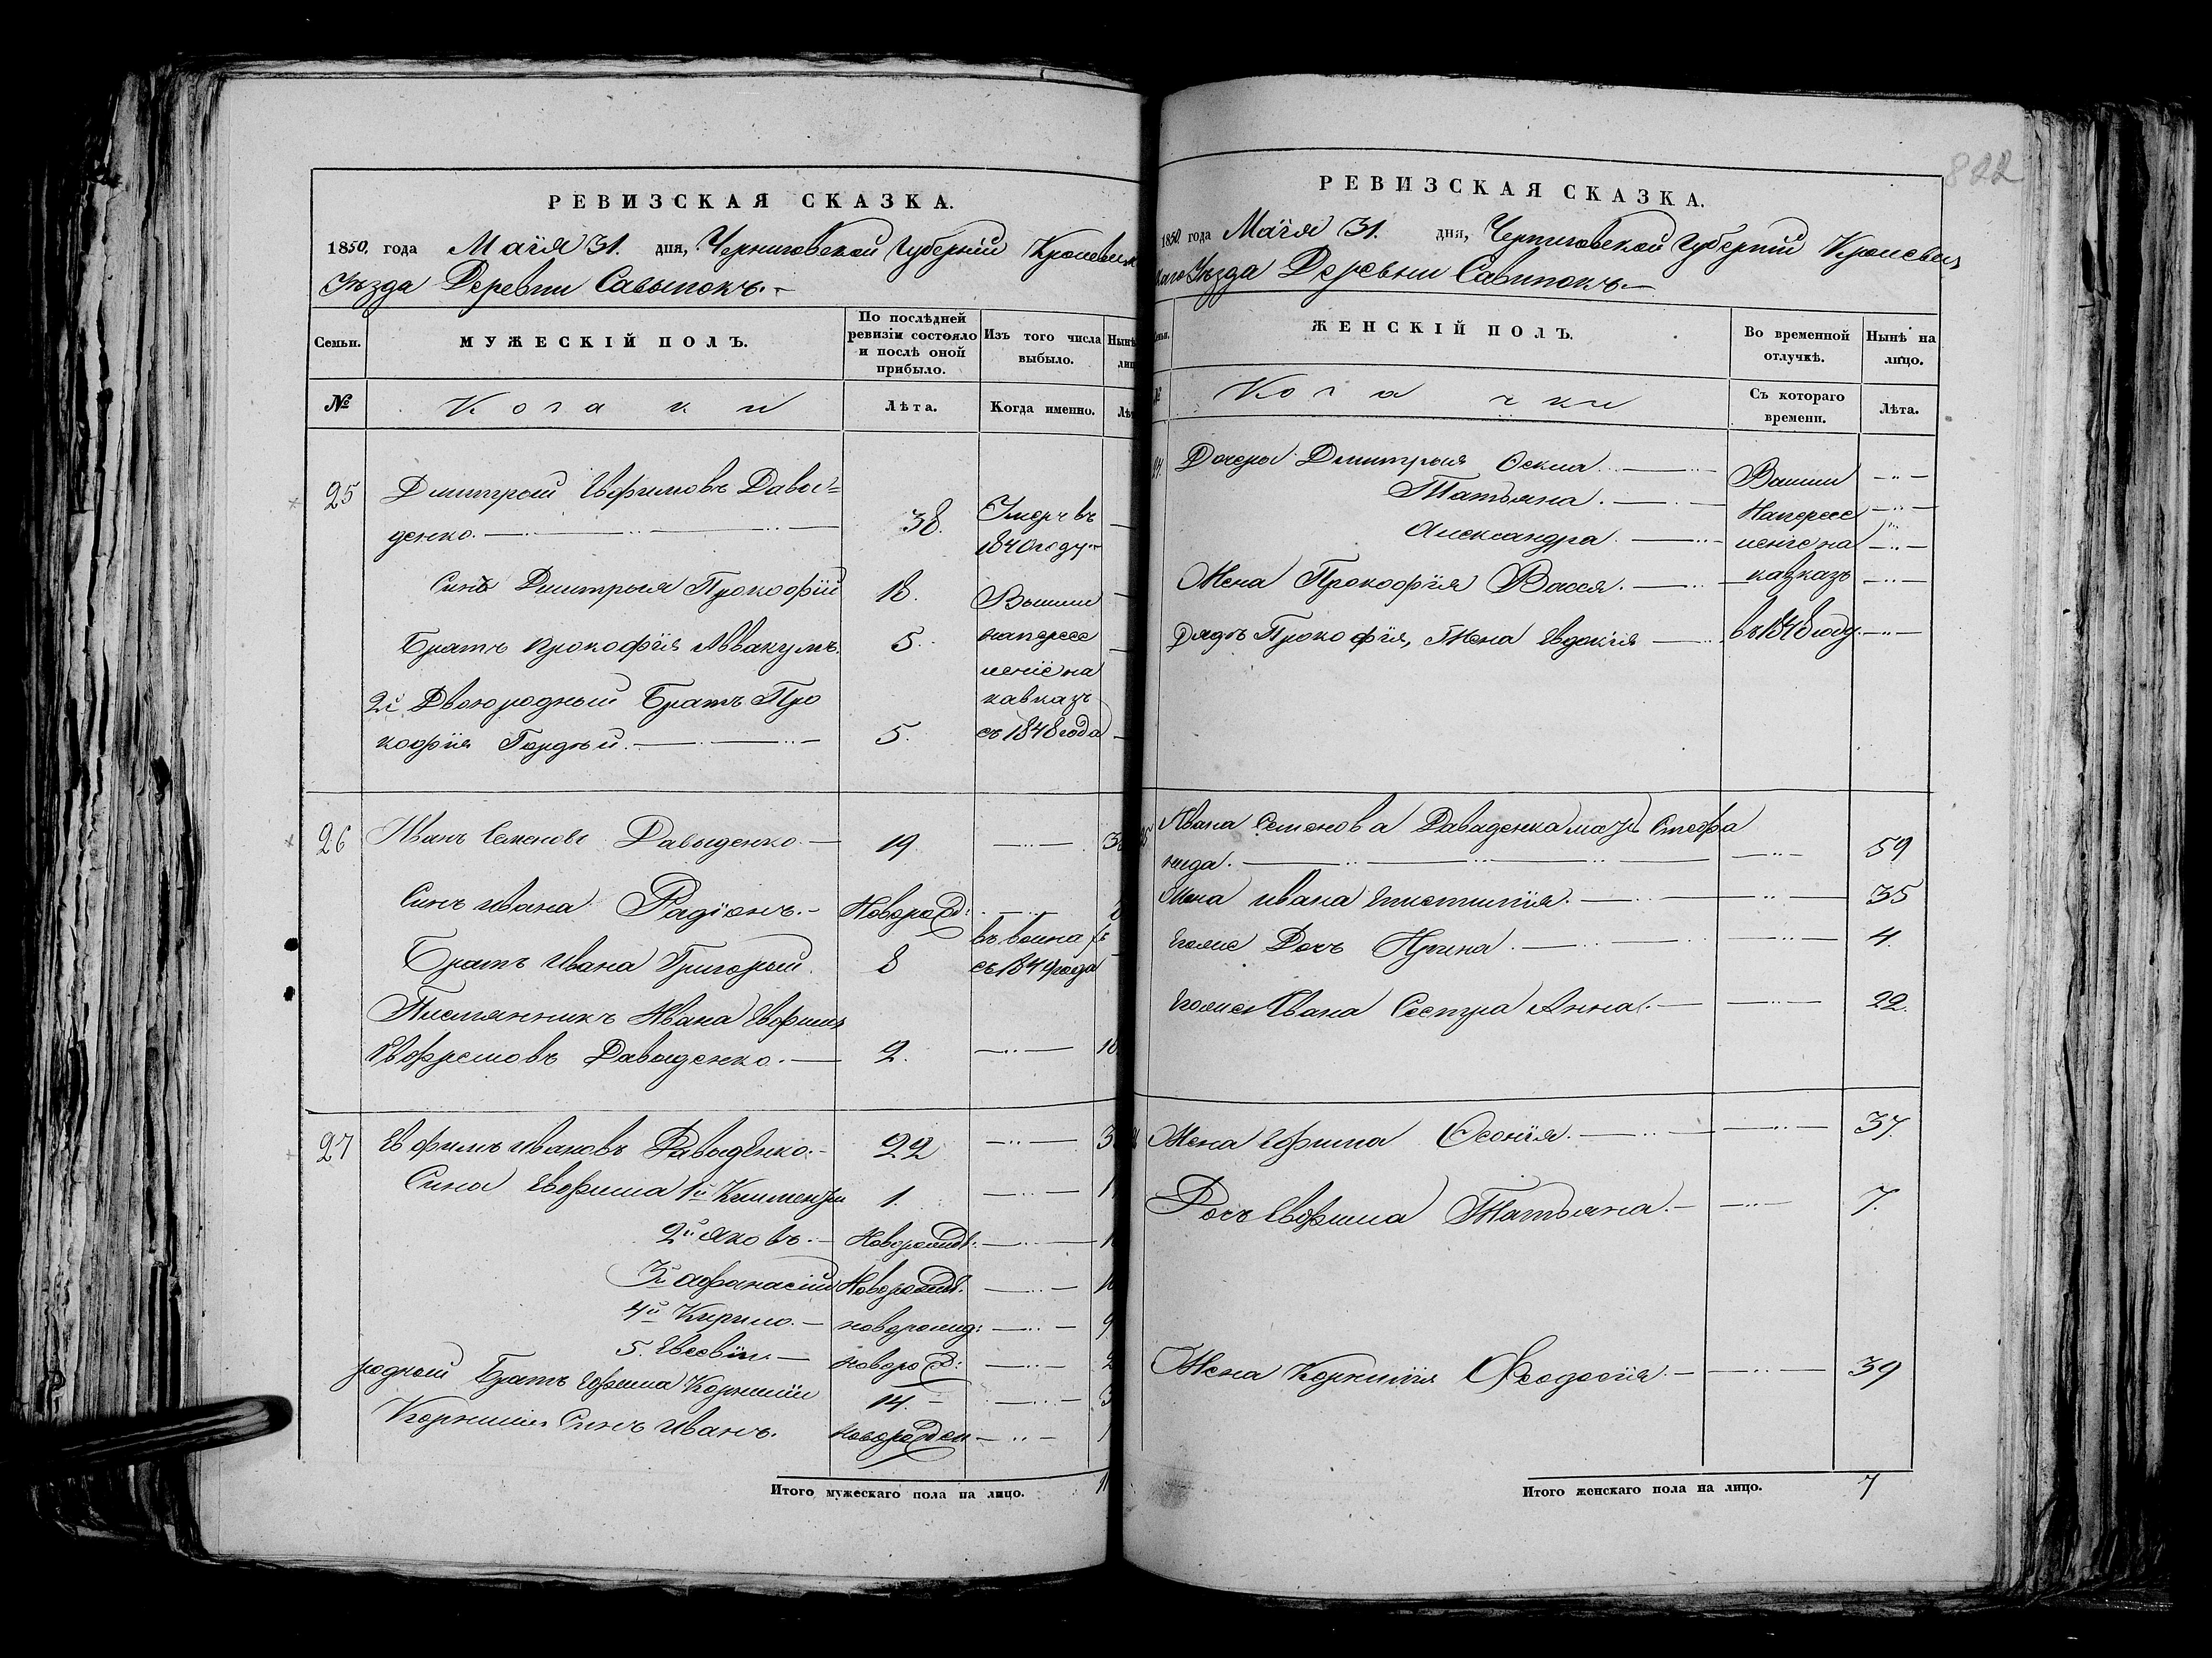 РЕВИЗСКАЯ СКАЗКА.
1850. года Маія 31. дня, Черниговской Губерніи Кролевец
Уѣзда Деревни Савынокъ.
Семьи.
МУЖЕСКІЙ ПОЛЪ.
По послѣдней ревизіи состояло и послѣ оной прибыло.
Изъ того числа выбыло.
Нынѣ
лиц
№
Козаки
Лѣта.
Когда именно.
Лѣт
25 Дмитрый Ефимовъ Давы=
денко. 38. Умеръ въ
1840 году
Синъ Дмитрыя Прокофій 18. Вышли
Братъ Прокофія Аввакумъ. 5. напересе
леніе на
2й Двоюродный Братъ Про кавказъ
кофія Гордѣй. 5. съ 1848 года
26 Иванъ Семеновъ Давыденко. 19
Синъ Ивана Радіонъ. Новорожд:
Братъ Ивана Григорый. 8 съ 1844 года
Племянникъ Ивана Евфимъ
Евфремовъ Давыденко. 2. 10.
27 Евфимъ Ивановъ Давыденко. 22
Сина Евфима 1й Климентій 1.
2й Яковъ. Новорожд:
3й Афанасій Новорожд.
4й Кирило. новорожд: 9
5. Евсевій. новорожд: 2
родный Братъ Ефима Корнилій 14.
Корнилія Синъ Иванъ. новорожден
Итого мужескаго пола на лицо. 11
822
РЕВИЗСКАЯ СКАЗКА.
1850 года Маія 31. дня, Черниговской Губерніи Кролевец
каго Уѣзда Деревни Савинокъ.
ЖЕНСКІЙ ПОЛЪ.
Во временной отлучкѣ.
Нынѣ на лицо.
№
Козачки
Съ котораго времени.
Лѣта.
Дочеры Дмитрыя Вышли
Татьяна. Напересе
Александра. леніе на
Жена Прокофія Васся. кавказъ
Дядѣ Прокофія, Жена Евдокія въ 1848 году.
Ивана Семенова Давыденка мать Стефа
нида. 59
Жена Ивана 35
Егоже Дочъ Ирина. 4.
Егоже Ивана Сестра Анна. 22.
Жена Ефима 37.
Дочъ Евфима Татьяна. 7.
Жена Корнилія Феодосія. 39
Итого женскаго пола на лицо. 7